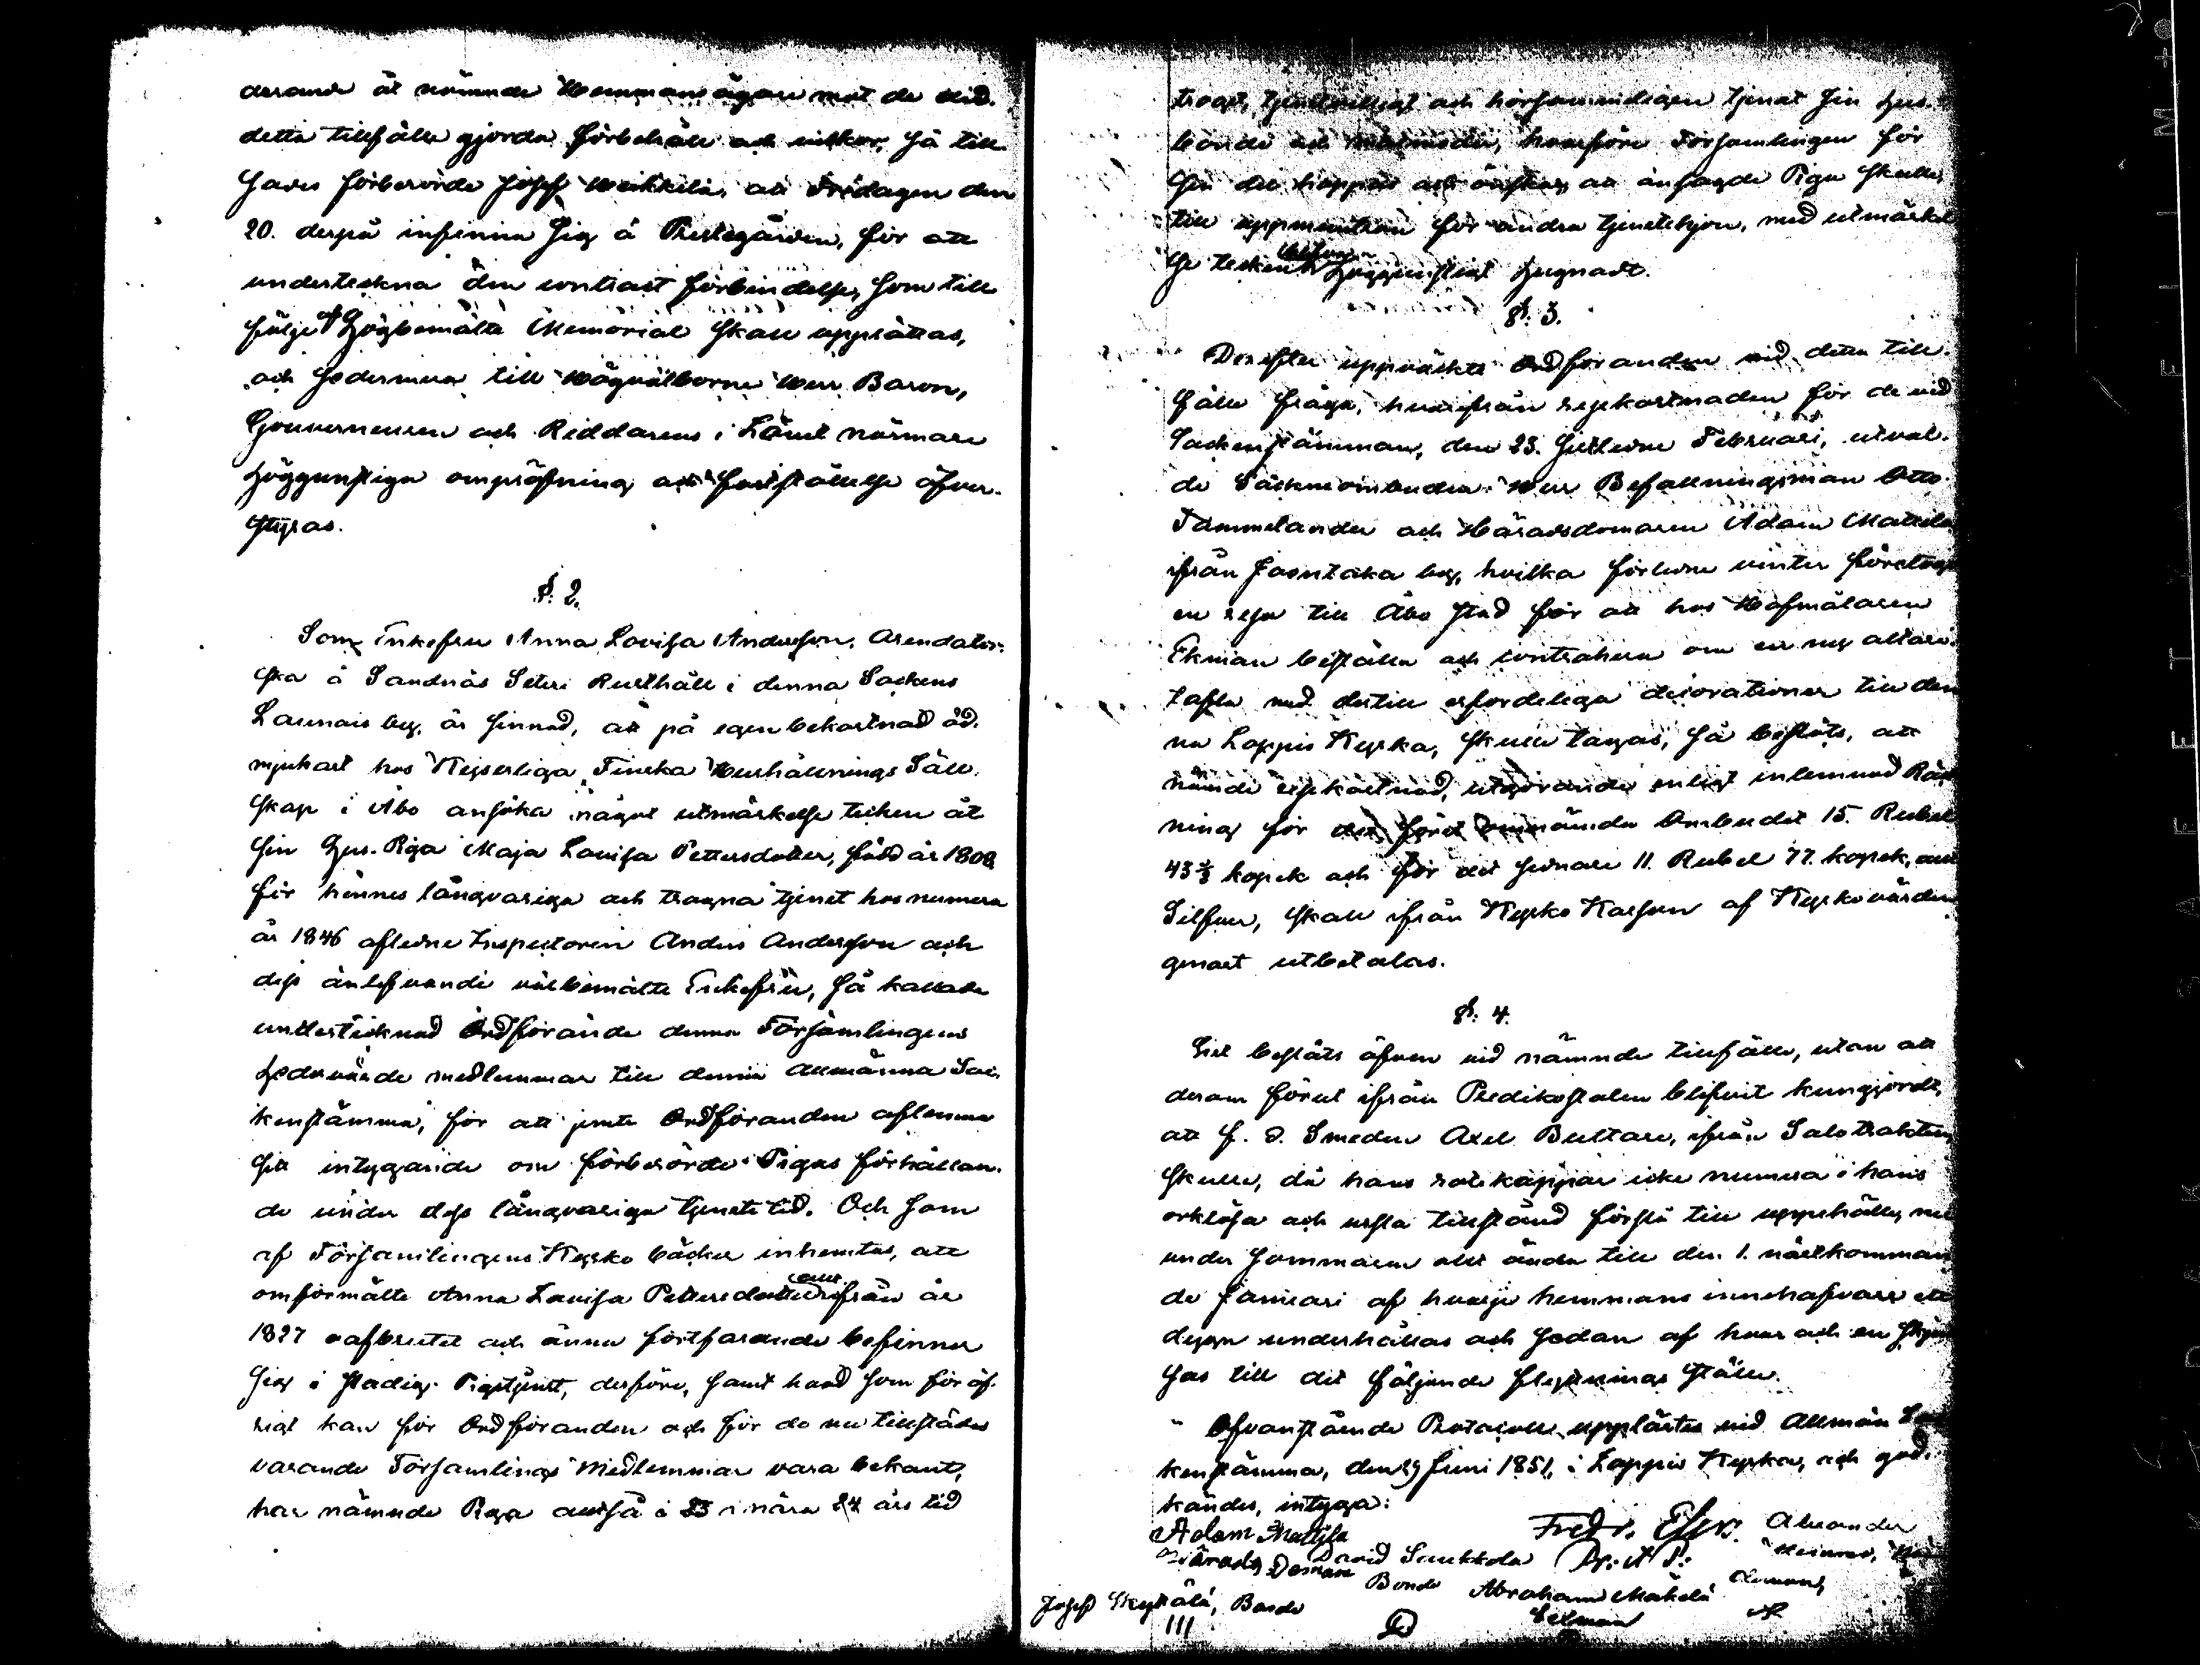 derande åt nämnde Hemmans ägare mot de vid
detta tillfälle gjorda förbehåll och vilkor, så till
sades förberörde Josef Weikkelä, att Fredagen den
20. derpå infinna sig å Prestegården, för att
underteckna den contract förbindelse, som till
följe af Högbemälte Memorial skall upprättas,
och sedermera till Högvälborne Herr Baron,
Gouverneuren och Riddarens i Länet närmare
höggunstiga ompröfning och fastställelse öfver-
styras.
§. 2.
Som Enkefru Anna Lovisa Andersson, Arendator-
ska å Sandnäs Säteri Rusthåll i denna Sockens
Launais by, är sinnad, att på egen bekostnad öd-
mjukast hos Kejserliga Finska Hushållnings Säll-
skap i Åbo ansöka något utmärkelse tecken åt
sin Hus-Piga Maja Lovisa Pettersdotter, född år 1808
för hennes långvariga och trogna tjenst hos numera
år 1846 aflidne Inspectoren Anders Andersson och
dess änlefvande välbemälte Enkefru, så kallade
undertecknad Ordförande denna Församlingens
hedervärde medlemmar till denna allmänna Soc-
kenstämma, för att jemte Ordföranden aflemna
sitt intygande om förberörde Pigas förhållan-
de under dess långvariga tjenste tid. Och som
af Församlingens Kyrko böcker inhemtas, att
omförmälte Anna Lovisa Pettersdotter allt ifrån år
1827 oafbrutet och ännu fortfarande befinner
sig i stadig Pigetjenst, derföre, samt hvad som för öf-
rigt kan för Ordföranden och för de nu tillstädes
varande Församlings Medlemmar vara bekant,
har nämnde Piga altså i 23 i nära 24 års tid
troget, tjenstvilligt och hörsammeligen tjenat sin Hus-
bonde och matmoder, hvarföre Församlingen för
sin del hoppas och önskar, att ansagde Piga skulle,
till uppmuntran för andra tjenstehjon, med utmärkel-
se tecken höggunstigt hugnadt.
§. 3.
Derefter uppväckte Ordföranden vid detta till-
fälle fråga, hvarifrån resekostnaden för de vid
Sockenstämman, den 23. sistledne Februari, utval-
de Sockneombuden: Herr Befallningsman Otto
Tammelander och Häradsdomaren Adam Mattila
ifrån Joentaka by, hvilka förledne vinter företog
en resa till Åbo stad för att hos Hofmålaren
Ekman beställa och contrahera om en ny altare-
tafla med dertill erforderliga decorationer till den
na Loppis Kyrka, skulle tagas, så beslöts, att
nämnde resekostnad, utgörande enligt inlemnad Räk
ning för det förut omnämnda Ombudet 15. Rubel
43 ⅓ kopek och för det sednare 11. Rubel 77. kopek, allt
Silfver, skall ifrån Kyrko Kassan af Kyrkovärden
genast utbetalas.
§. 4.
beslöts äfven vid nämnde tillfälle, utan att
derom förut ifrån Predikostolen blifvit kungjordt,
att f. d. Smeden Axel Bultare, ifrån Salo trakten,
skulle, då hans rotekappar icke numera i hans
orklösa och usla tillstånd förslå till uppehälle, nu
under sommaren allt ända till den 1. nästkomman
de Januari af hvarje hemmans innehafvare ett
dygn underhållas och sedan af hvar och en skjut
sas till det följande flyttnings ställe.
Ofvanstående Protocoll, uppläste vid Allmän Soc
kenstämma, den 29 Juni 1851, i Loppis Kyrka, och god-
kändes, intyga:
Adam Mattila
Härads Domare
David Saukkola
Bonde
Fredr.
Alexander
Abraham Mäkelä
Sexman
Josef Skyttälä, Bonde